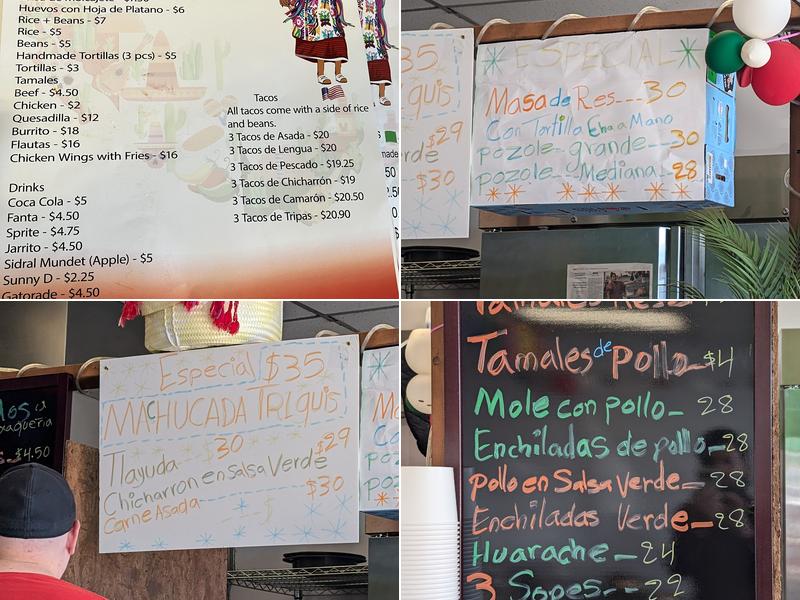 Huevos con Hoja de Platano - $6
Rice + Beans - $7
Rice - $5
Beans - $5
Handmade Tortillas (3 pcs) - $5
Tortillas - $3
Tamales
Beef - $4.50
Chicken - $2
Quesadilla - $12
Burrito - $18
Flautas - $16
Chicken Wings with Fries - $16
Drinks
Coca Cola - $5
Fanta - $4.50
Sprite - $4.75
Jarrito - $4.50
Sidral Mundet (Apple) - $5
Sunny D - $2.25
Gatorade - $4.50
Tacos
All tacos come with a side of rice
and beans.
3 Tacos de Asada - $20
3 Tacos de Lengua - $20
3 Tacos de Pescado - $19.25
3 Tacos de Chicharrón - $19
3 Tacos de Camarón - $20.50
3 Tacos de Tripas - $20.90
35
quis
$29
rde
$30
ESPECIAL
Masa de Res---30
Con Tortilla Echa a Mano
pozole-grande--30
pozole-Mediana--28
$4.50
Especial $35
MACHUCADA TRIQUIS
Tlayuda 30
Chicharron en Salsa Verde $29
Carne Asada $30
Tamales de pollo-$4
Mole con pollo- 28
Enchiladas de pollo-28
pollo en Salsa Verde- 28
Enchiladas Verde-28
Huarache-24
3 Sopes--22